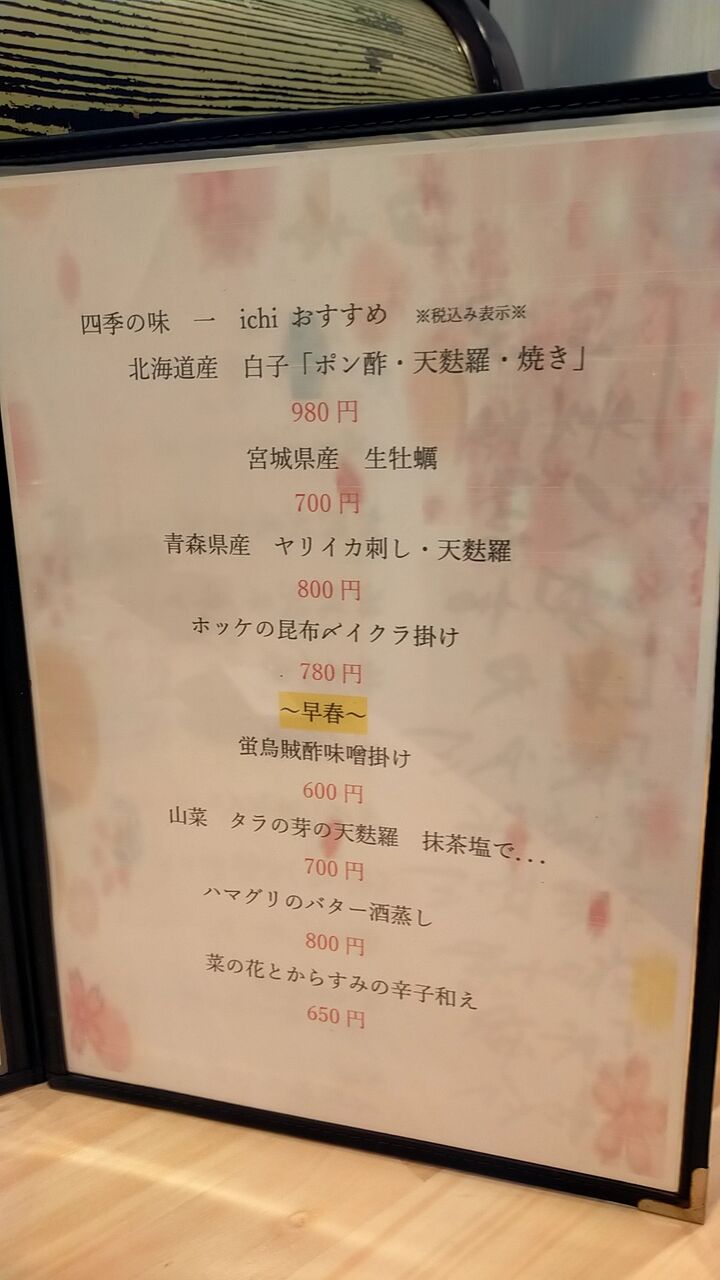 四季の味　一　ichi おすすめ　※税込み表示※
北海道産　白子「ポン酢・天麩羅・焼き」
980 円
宮城県産　生牡蠣
700 円
青森県産　ヤリイカ刺し・天麩羅
800 円
ホッケの昆布〆イクラ掛け
780 円
～早春～
蛍烏賊酢味噌掛け
600 円
山菜　タラの芽の天麩羅　抹茶塩で...
700 円
ハマグリのバター酒蒸し
800 円
菜の花とからすみの辛子和え
650 円